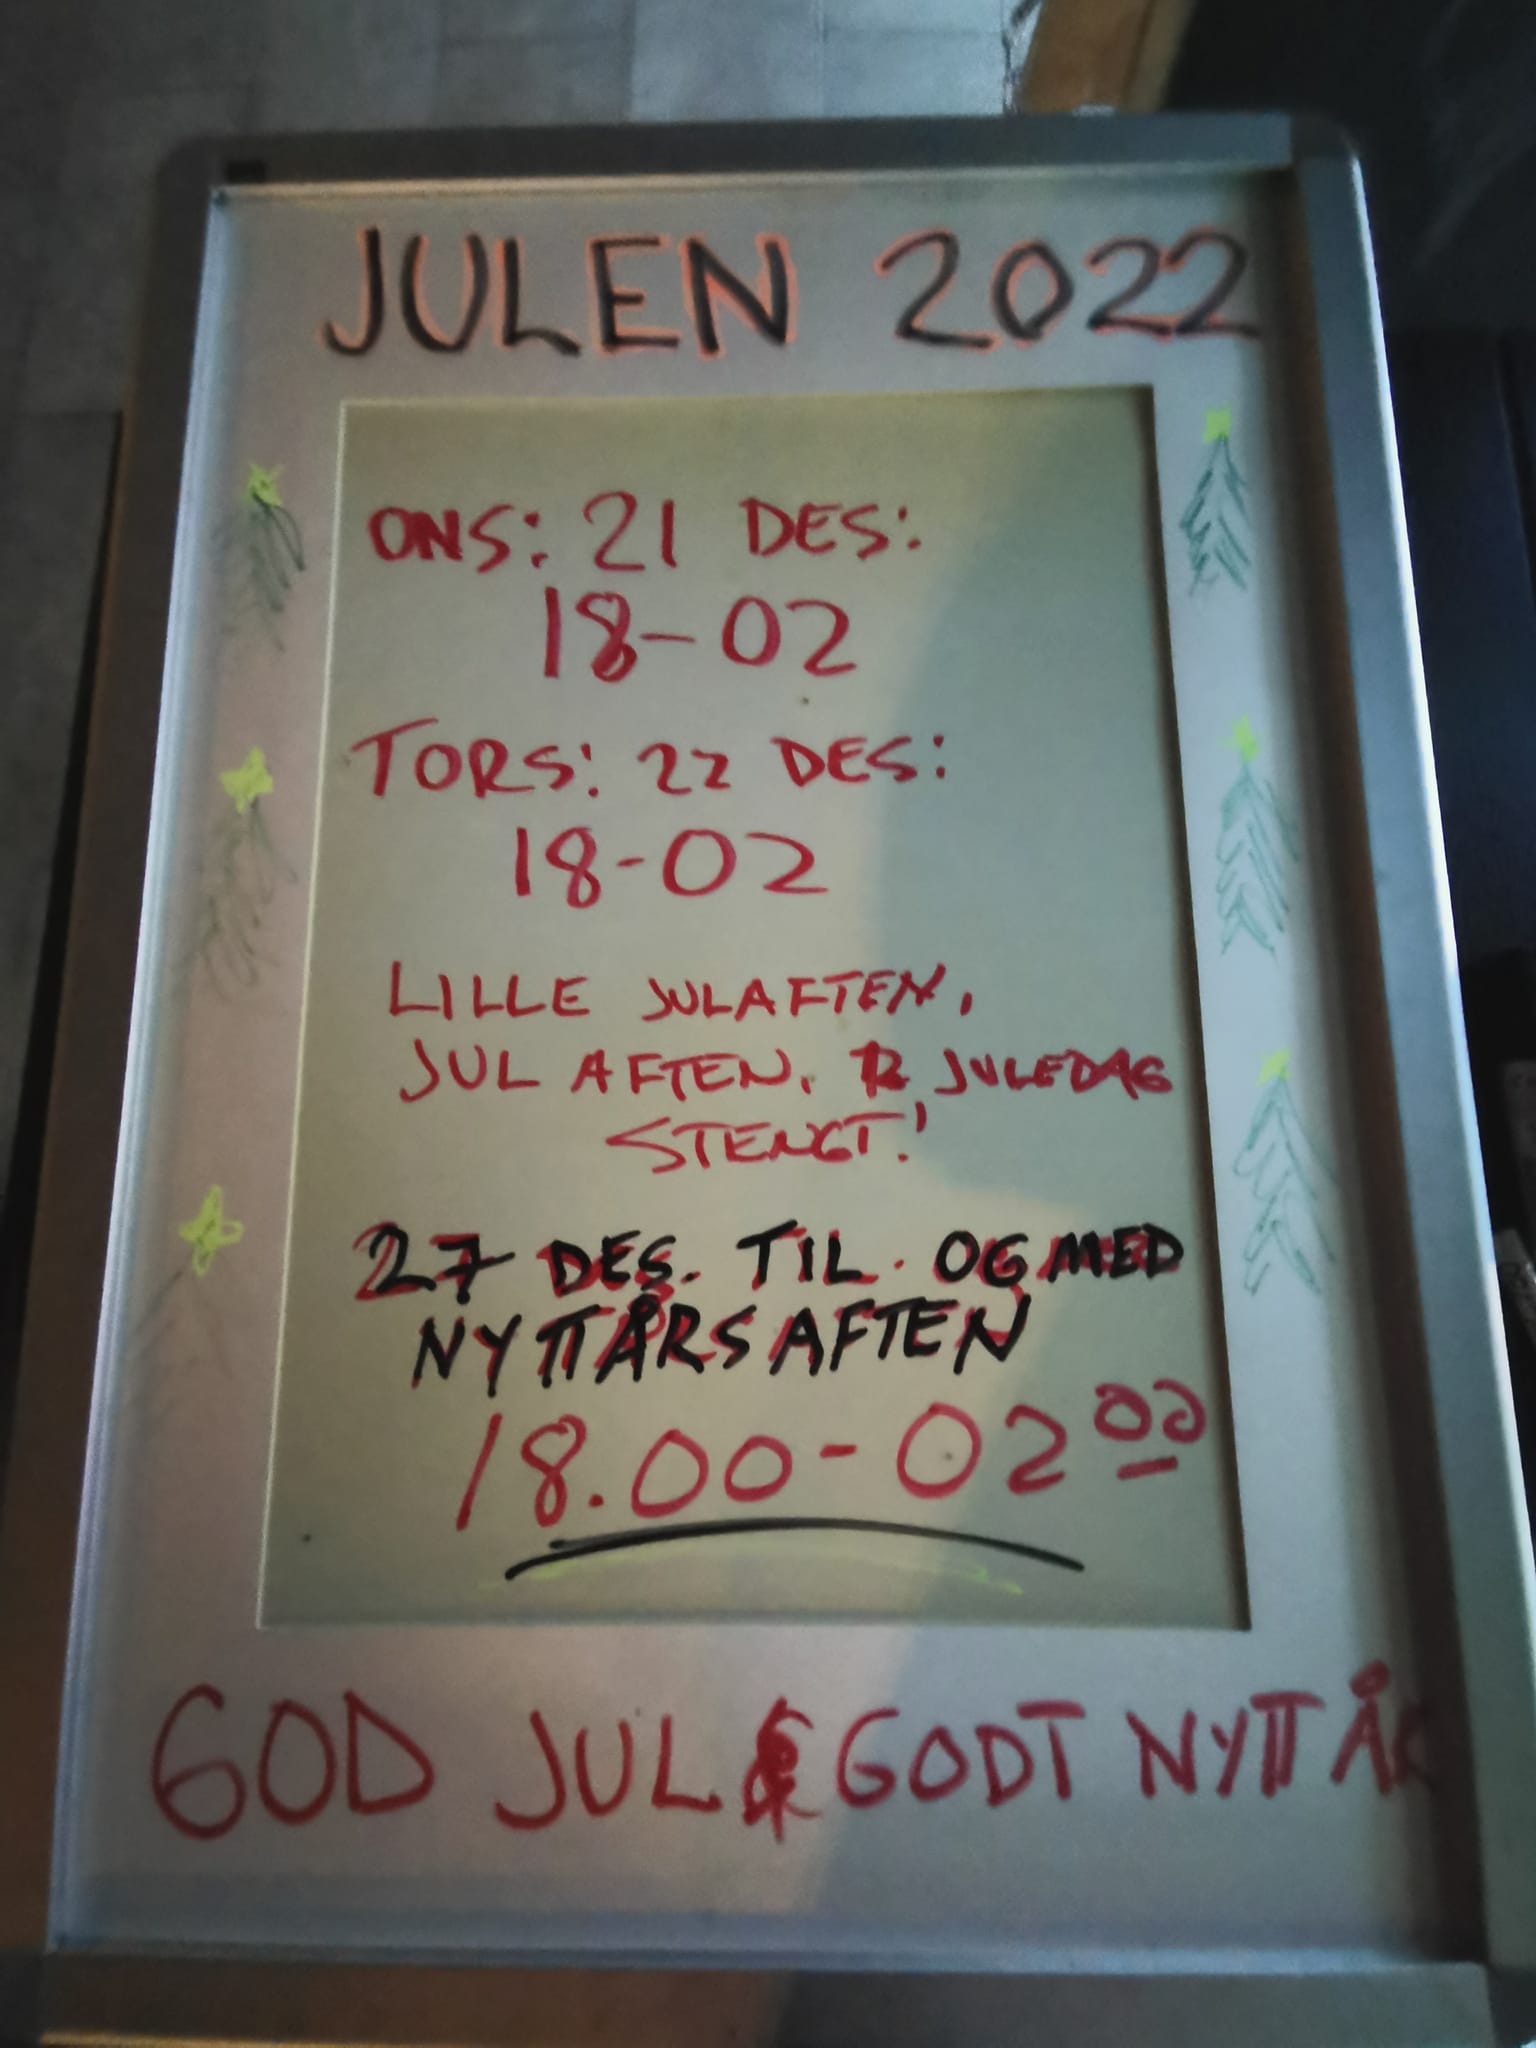 JULEN 2022
ONS: 21 DES:
18-02
TORS: 22 DES:
18-02
LILLE JULAFTEN,
JUL AFTEN, JULEDAG
STENGT!
27 DES. TIL OG MED
NYTTÅRSAFTEN
18.00-02 00
GOD JUL & GODT NYTTÅR